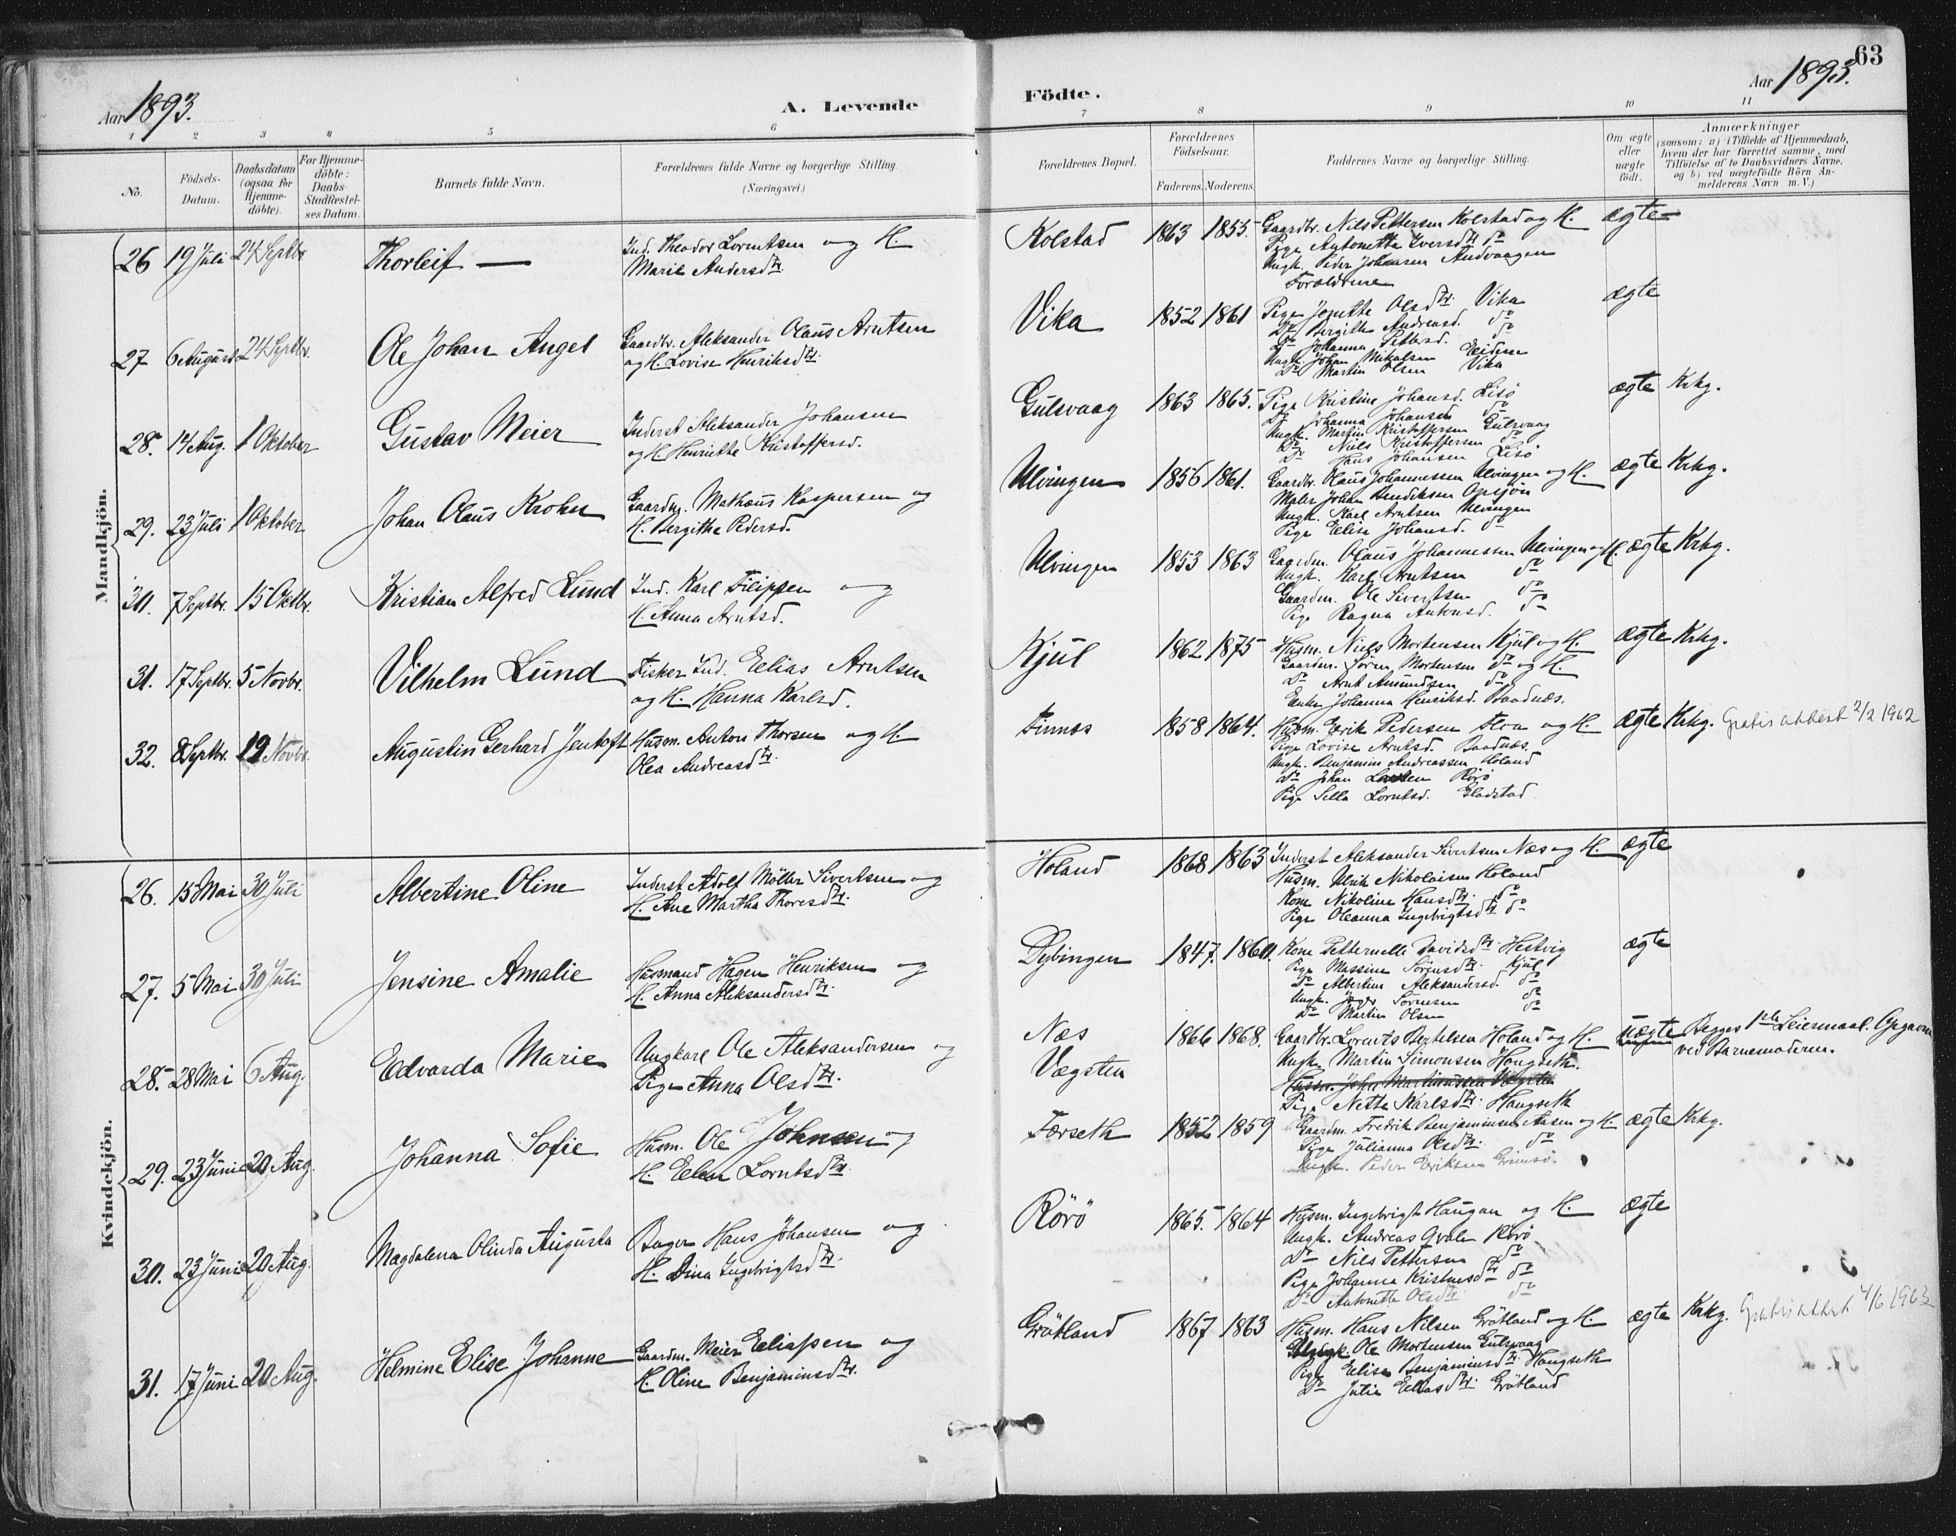 63
Aar 1893.
A. Levende
Födte.
Aar 1893.
1 2 3 4 5 6 7 8 9 10 11
No.
Födsels-Datum.
Daabsdatum (ogsaa for Hjemmedöbte).
For Hjemmedöbte: Daabs-Stadfæstelses Datum.
Barnets fulde Navn.
Forældrenes fulde Navne og borgerlige Stilling. (Næringsvei.)
Forældrenes Bopæl.
Forældrenes Födselsaar.
Faderens. Moderens.
Faddernes Navne og borgerlige Stilling.
Om ægte eller uægte födt.
Anmærkninger
(saasom: a) i Tilfælde af Hjemmedaab,
hvem der har forrettet samme, med
Tilföielse af to Daabsvidners Navne,
og b) ved uægtefödte Börn Anmelderens Navn m. V.)
Mandkjön.
26 19 Juli 24 Septbr. Thorleif — Ind. Theodor Lorentsen og H. Kolstad 1863 1855. Gaardbr. Nils Pettersen Kolstad og H. ægte
Marie Andersdtr. Pige Antonetta Iversdtr do
Ungk. Peder Johansen Andvaagen
Forældrene
27 6 August 24 Septbr. Ole Johan Angel Gaardbr. Aleksander Olaus Arntsen Vika 1852 1861 Pige Jonette Olsdtr. Vika ægte
og H. Lovise Henriksdtr. Do Bergitte Andreasd. do
Do Johanna Pettersd. do
Ungk. Johan Mikalsen Eidem
Do Martin Olsen Vika
28. 14 Aug. 1 Oktober Gustav Meier Inderst Aleksander Johansen Gulsvaag 1863 1865. Pige Kristine Johansd. Lisö ægte Krkg.
og H. Henriette Kristoffersd. Do Johanna Johansd do
Ungk. Martin Kristoffersen Gulsvaag
Do Nils Kristoffersen do
Do Hans Johansen Lisö
29. 23 Juli 1 Oktober Johan Olaus Krohn Gaardm. Mathæus Kaspersen og Ulvingen 1856 1861. Gaardbr. Olaus Johannessen Ulvingen og H. ægte Krkg.
H. Bergithe Pedersd. Maler Johan Hendriksen Opsjön
Ungk. Karl Arntsen Ulvingen
Pige Elise Johansd. do
30. 7 Septbr. 15 Oktbr. Kristian Alfred Lund Ind. Karl Filippsen og Ulvingen 1853 1863 Gaardm. Olaus Johannessen Ulvingen og H. ægte Krkg.
H. Anna Arntsd. Ungk. Karl Arntsen do
Gaardm. Ole Sivertsen do
Pige Ragna Antonsd. do
31. 17 Septbr. 5 Novbr. Vilhelm Lund Fisker Ind. Elias Arntsen Kjul 1862 1875 Husm. Niels Mortensen Kjul og H. ægte Krkg.
og H. Hanna Karlsd. Gaardm. Sören Mortensen do og H.
Do Arnt Amundsen do
Enke Johanna Henriksd. Baadnæs.
32. 8 Septbr. 19 Novbr. Augustin Gerhard Jentoft Husm. Anton Thorsen og H. Finnes 1858 1864. Husm. Erik Pedersen og H. ægte Krkg. Gratis attest 2/2 1962
Olea Andreasdtr. Pige Lovise Arntsd. Baadnæs.
Ungk. Benjamin Andreassen Holand
Do Johan Rörö
Pige Sella Lorntsd. Gladstad
Kvindekjön.
26. 15 Mai 30 Juli Albertine Oline Inderst Adolf Möller Sivertsen og Holand 1868 1863 Inderst Aleksander Sivertsen Næs og H. ægte
H. Ane Martha Thoresdtr. Husm. Ulrik Nikolaisen Holand
Kone Nikoline Hansdtr. do
Pige Oleanna Ingebrigtsdtr do
27. 5 Mai 30 Juli Jensine Amalie Husmand Hagen Henriksen og Dybingen 1847. 1860. Kone Petternelle Davidsdtr. Hestvig ægte
H. Anna Aleksandersdtr. Pige Massine Sörensdtr. Kjul
Do Albertine Aleksandersd. do
Ungk. Sörensen do
Do Martin Olsen do
28. 28 Mai 6 Aug. Edvarda Marie Ungkarl Ole Aleksandersen og Næs 1866 1868. Gaardbr. Lorents Bertelsen Holand og H. uægte Begges 1ste Leiermaal. Opgaven
Pige Anna Olsdtr. Vægsten Ungk. Martin Simonsen Haugseth. ved Barnemoderen.
Pige Netta Karlsdtr. Haugseth
29. 23 Juni 20 Aug. Johanna Sofie Husm. Ole Johnsen og Forseth 1852 1859 Gaardm. Fredrik Benjaminsen Aasen og H. ægte Krkg.
H. Elen Lorntsdtr. Pige Julianna Olsdtr. do
Ungk. Peder Eriksen Grimsö.
30. 23 Juni 20 Aug. Magdalena Olinda Augusta Bager Hans Johansen og Rörö 1865. 1864 Husm. Ingebrigt Haugan og H. ægte
H. Dina Ingebrigtsdtr. Ungk. Andreas Rörö
Do Nils Pettersen do
Pige Johanna Kristensdtr do
Do Antonette Olsdtr. do
31. 17 Juni 20 Aug. Helmine Elise Johanne Gaardm. Meier Eliassen og Grötland 1867 1863 Husm. Hans Nilsen Grötland og H. ægte Krkg. Gratis attest 4/6 1963
H. Oline Benjaminsdtr. Ungk. Ole Mortensen Gulsvaag
Pige Elise Benjaminsdtr. Haugseth
Do Julie Eliasdtr. Grötland